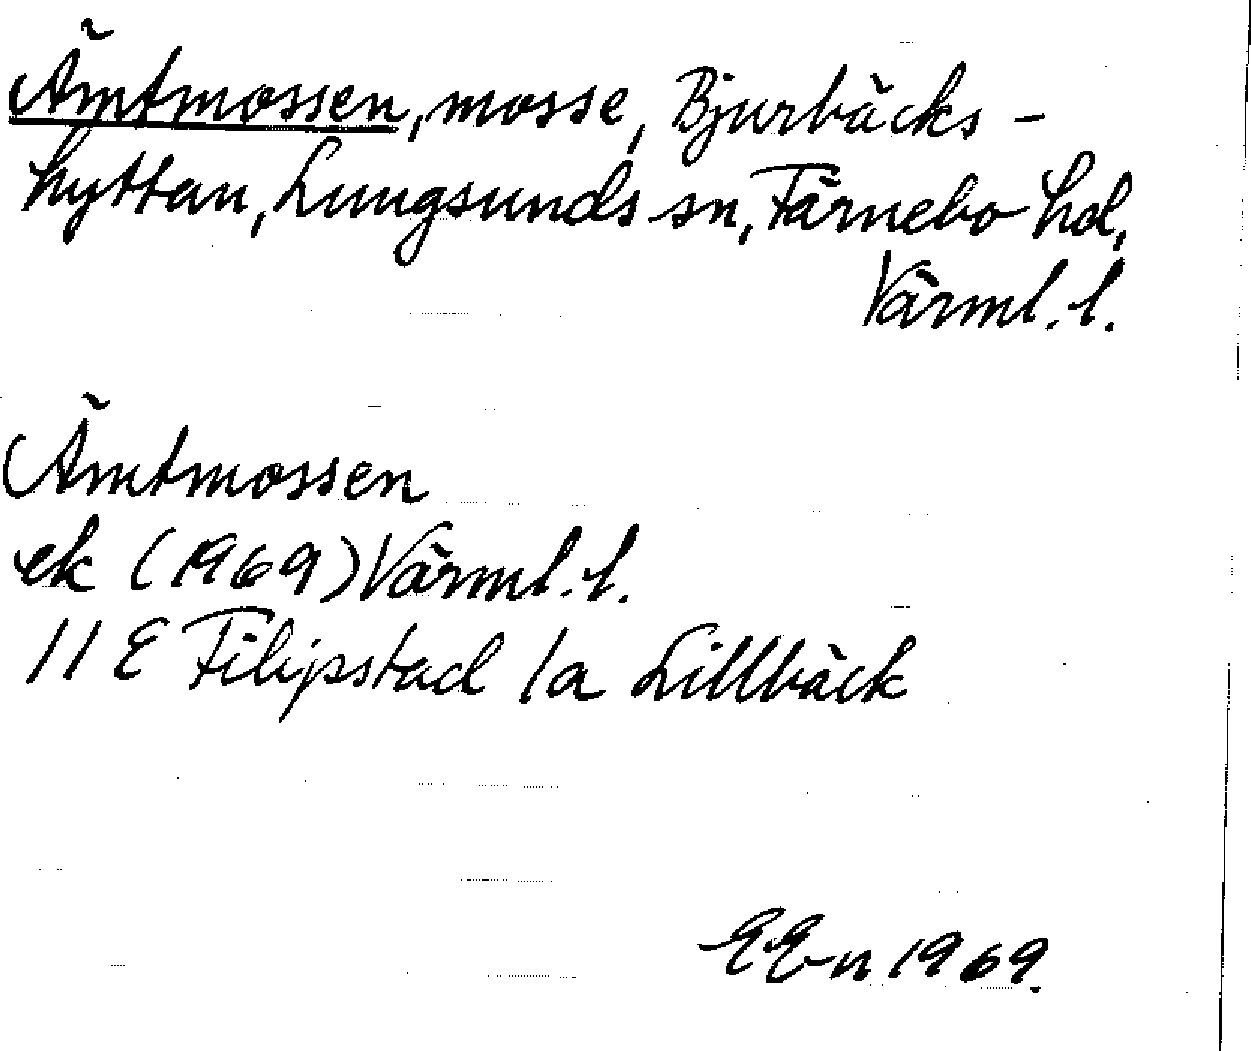 Ämtmossen, mosse, Bjurbäcks-
hyttan, Lungsunds sn, Färnebo hd,
Värml. l.
Ämtmossen
ek (1969) Värml. l.
11 E Filipstad 1a Lillbäck
EEn 1969.